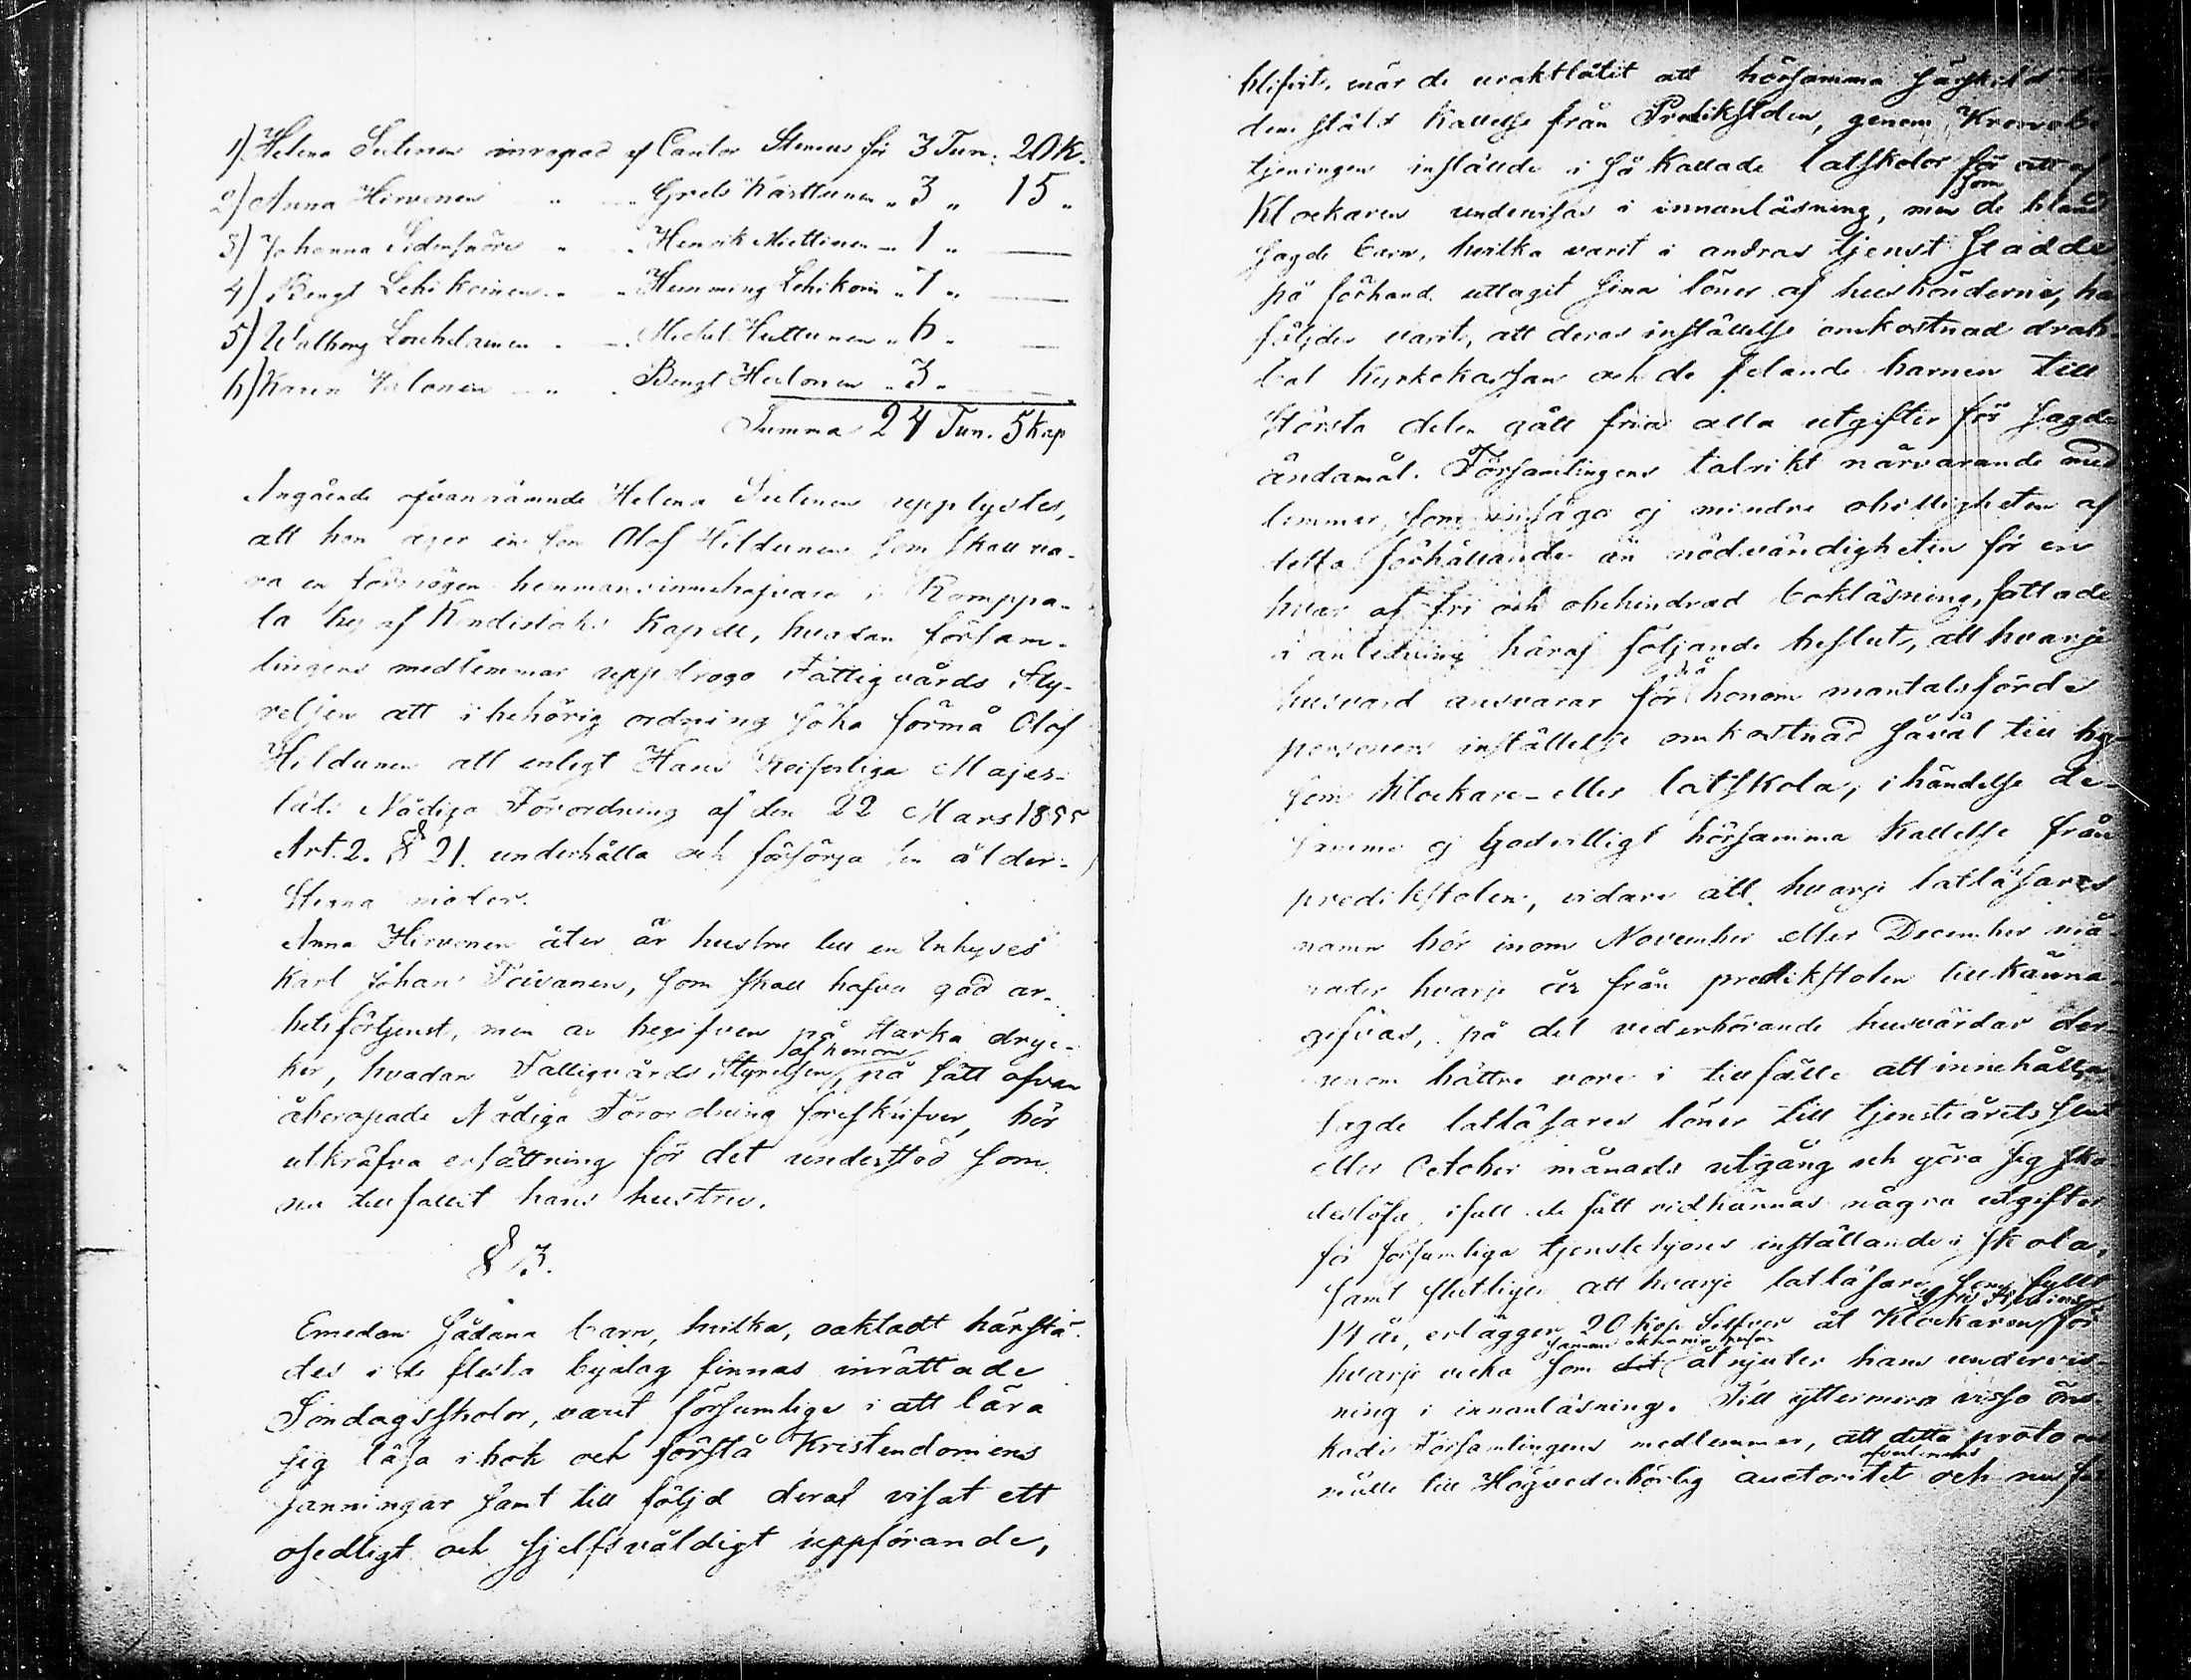 1) Helena Sutinen inropad af Cantor Steneus för 3 Tun. 20 K.
2) Anna Hirvonen " " Grels Karttunen " 3 " 15 "
3) Johanna Sidensnöre " " Henrik Miettinen " 1 " —
4) Bengt Lehikoinen " " Hemming Lehikoin " 1 " —
5) Walborg Loukelainen " " Michel Huttunen " 6 " —
6) Karin Halonen " " Bengt Halonen " 3 " —
Summa 24 Tun. 5 Kap
Angående ofvannämnde Helena Sutinen upplystes,
att hon äger en son Olof Hildunen som skall va-
ra en förmögen hemmansinnehafvare i Romppa-
la by af Kondistaks Kapell, hvadan försam-
lingens medlemmar uppdrogo Fattigvårds Sty-
relsen att i behörig ordning söka förmå Olof
Hildunen att enligt Hans Keiserliga Majes-
täts Nådiga Förordning af den 22 Mars 1852
Art. 2. § 21. underhålla och försörja sin ålder-
stegna moder.
Anna Hirvonen åter är hustru till en Inhyses
Karl Johan Toivanen, som skall hafva god ar-
betsförtjenst, men är begifven på starka dryc-
ker, hvadan Fattigvårds Styrelsen af honom, på sätt ofvan
åberopade Nådiga Förordning föreskrifver, bör
utkräfva ersättning för det understöd som
nu tillfallit hans hustru.
§ 3.
Emedan sådana barn, hvilka, oaktadt härstä-
des i de flesta byalag finnas inrättade
Söndagsskolor, varit försumliga i att lära
sig läsa i bok och förstå Kristendomens
sanningar samt till följd deraf visat ett
osedligt och sjelfsvåldigt uppförande,
blifvit, när de uraktlåtit att hörsamma särskild till
dem stäld Kallelse från Predikstolen, genom Kronobe
tjeningen instälde i så kallade latskolor för att af
Klockaren undervisas i innanläsning, men som de bland
sagde barn, hvilka varit i andras tjenst städde
på förhand uttagit sina löner af husbönderne, har
följden varit, att deras inställelse omkostnad drab-
bat Kyrkokassan och de felande barnen till
största delen gått fria alla utgifter för sagde
ändamål. Församlingens talrikt närvarande med
lemmar, som insågo ej mindre obilligheten af
detta förhållande än nödvändigheten för en
hvar af fri och obehindrad bokläsning, fattade
i anledning häraf följande beslut, att hvarje
husvard ansvarar för hos honom mantalsförde
personers inställelse omkostnad såväl till by-
som klockare- eller latskola, i händelse de
samme ej godvilligt hörsamma Kallelse från
predikstolen, vidare att hvarje latläsares
namn bör inom November eller December må-
nader hvarje år från predikstolen tillkänna-
gifvas, på det vederbörande husvärdar der-
igenom bättre vore i tillfälle att innehålla
sagde latläsares löner till tjensteårets slut
eller October månads utgång och göra sig ska-
deslösa, ifall de fått vidkännas några utgifter
för försumliga tjenstehjons inställande i skola,
samt slutligen att hvarje latläsare, som fyllt
14 år, erlägger 20 Kop. Silfver åt Klockaren för
hvarje vecka som åtnjuter hans undervis-
ning i innanläsning. Till yttermera visso öns-
kade Församlingens medlemmar, att detta proto
mätte till Högvederbörlig auctoritet och